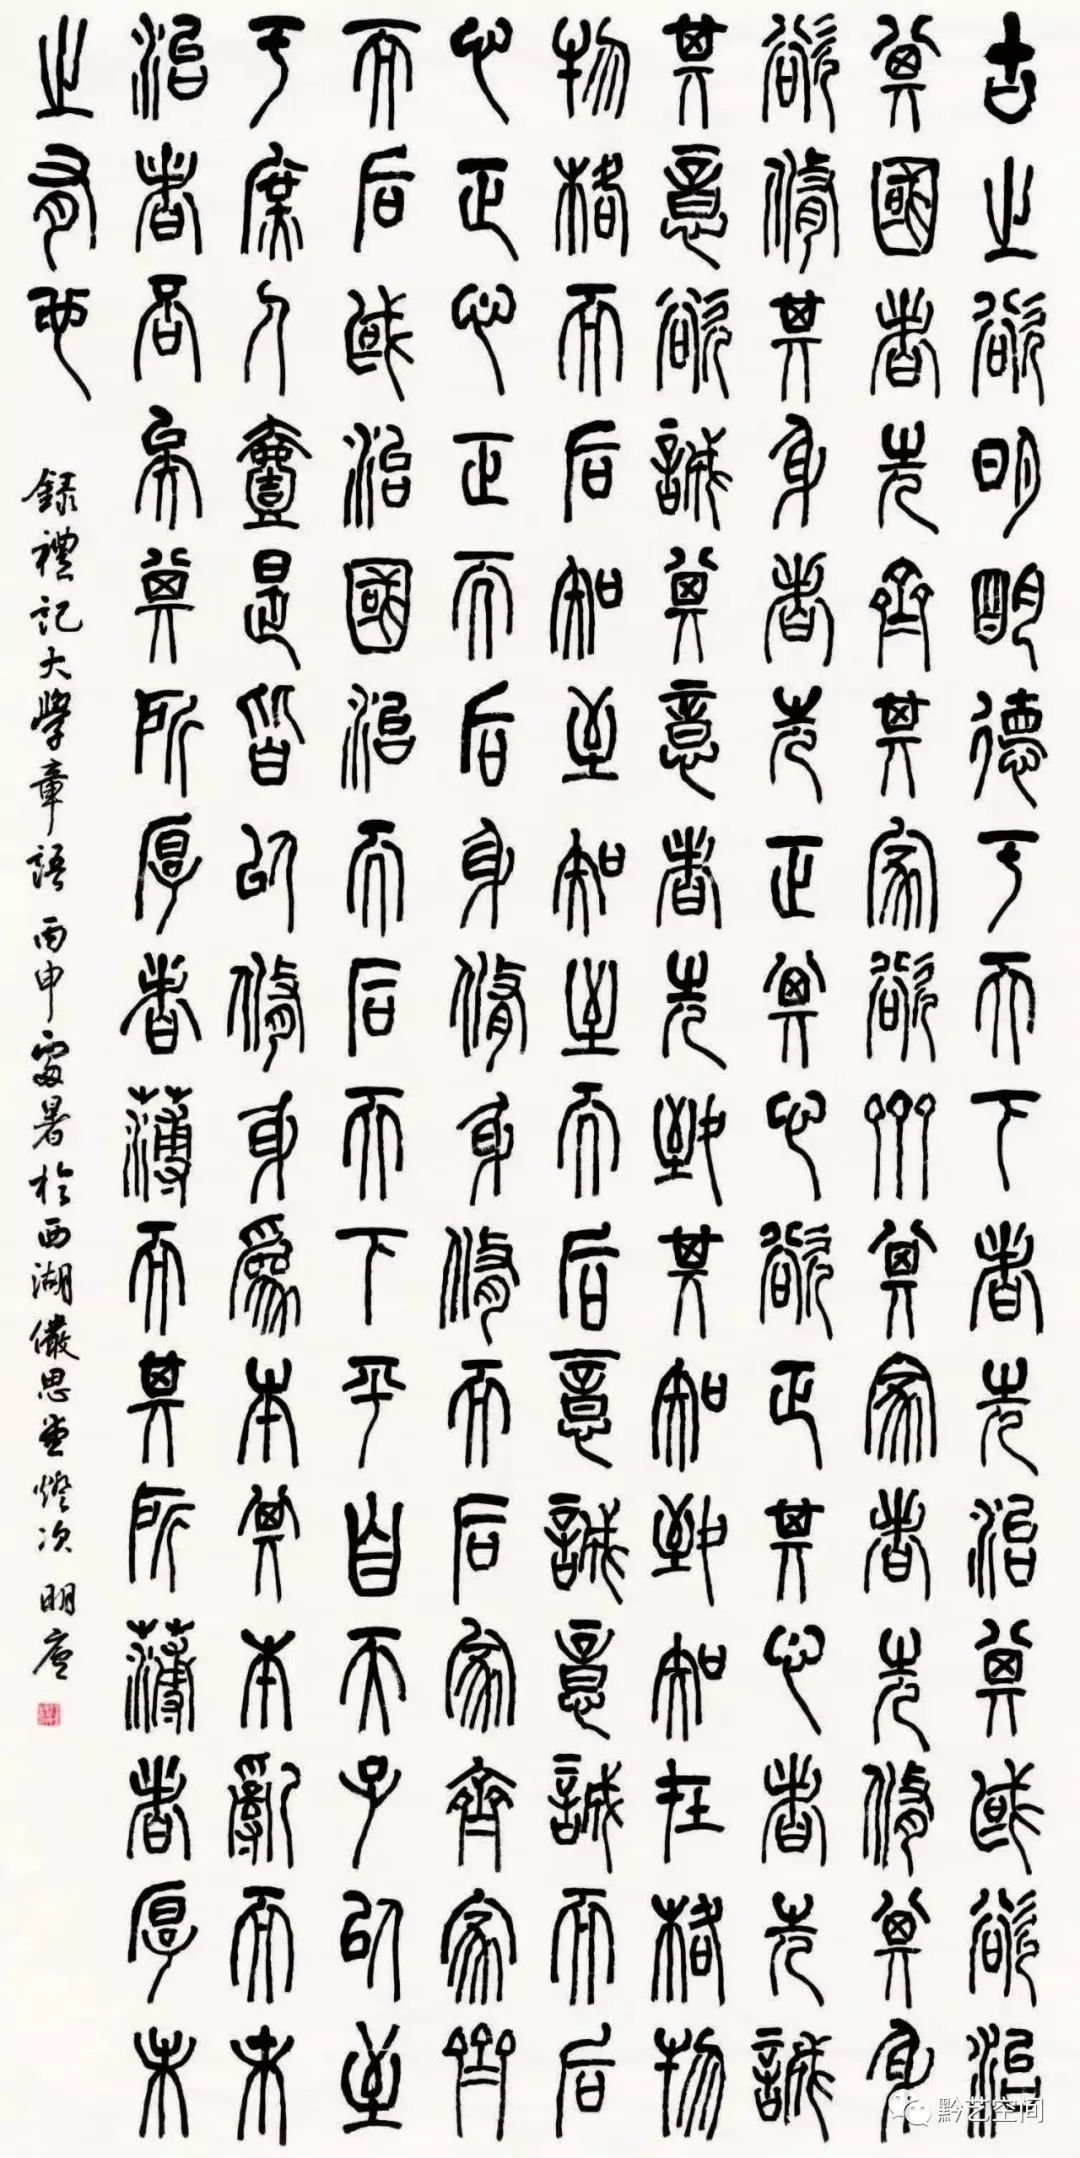 古之欲明明德于天下者先治其國欲治
其國者先齊其家欲齊其家者先脩其身
欲脩其身者先正其心欲正其心者先誠
其意欲誠其意者先致其知致知在格物
物格而后知至知至而后意誠意誠而后
心正心正而后身脩身脩而后家齊家齊
而后國治國治而后天下平自天子以至
于庶人壹是皆以脩身爲本其本亂而末
治者否矣其所厚者薄而其所薄者厚未
之有也
録禮記大學章語 丙申處暑於西湖儼思堂燈次 明庵
黔艺空间